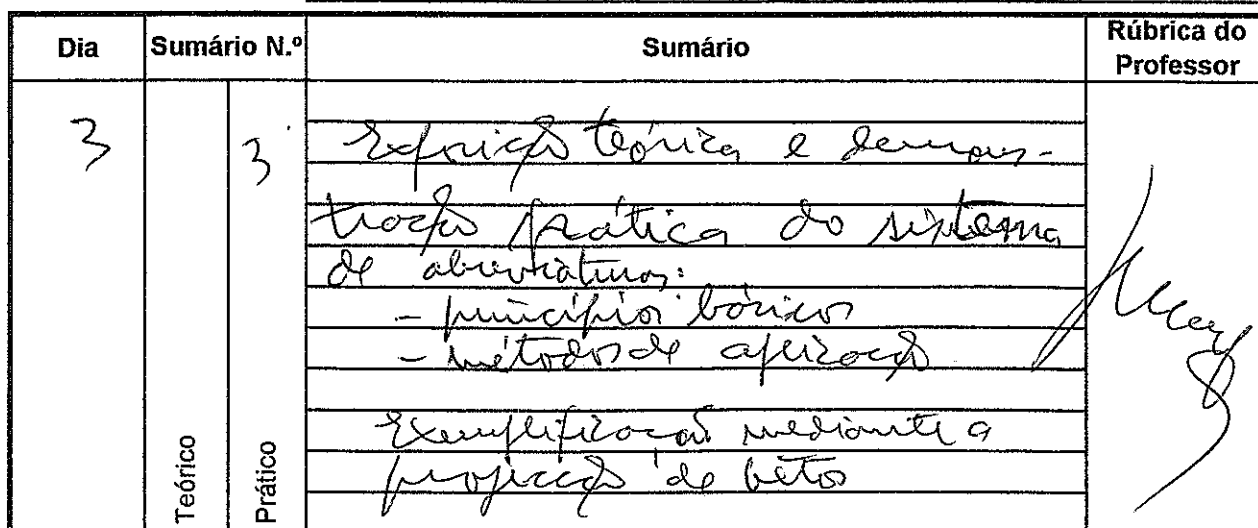 Dia Sumário N.º Sumário Rúbrica do Professor
3 3 Exposição teórica e demons-
tração prática do sistema
de abreviaturas:
- princípios básicos
- métodos de aplicação
Exemplificação mediante a
projecção de
Teórico
Prático